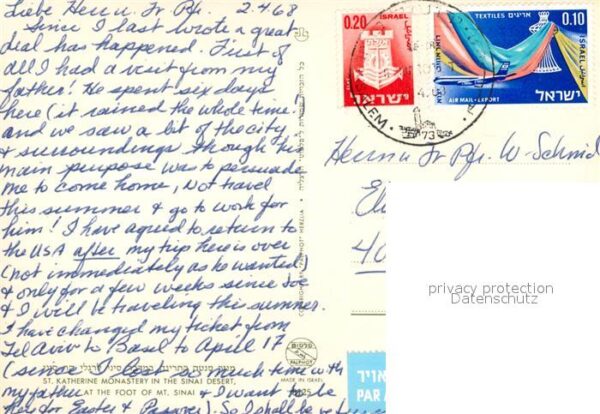 Liebe Herrn u. Fr Pfr. 2.4.68
Since I last wrote a great
deal has happened. First of
all I had a visit from my
father! He spent six days
here (it rained the whole time!
and we saw a bit of the city
& surroundings though his
main purpose was to persuade
me to come home, not travel
this summer & go to work for
him! I have agreed to return to
the USA after my trip here is over
(not immediately as he wanted)
& only for a few weeks since so
& I will be traveling this summer.
I have changed my ticket from
Tel Aviv to Basel to April 17
(since I lost so much time with
my father & I want to be
here for Easter & Passover). So I shall be
ST. KATHERINE MONASTERY IN THE SINAI DESERT,
AT THE FOOT OF MT. SINAI
PALPHOT
MADE IN ISRAEL
0.20 ISRAEL
ישראל
TEXTILES אריגים
0.10
ISRAEL
AIR MAIL·EXPORT
ישראל
73
Herrn u Fr Pfr. W. Schmid
40
privacy protection
Datenschutz
אויר
PAR A